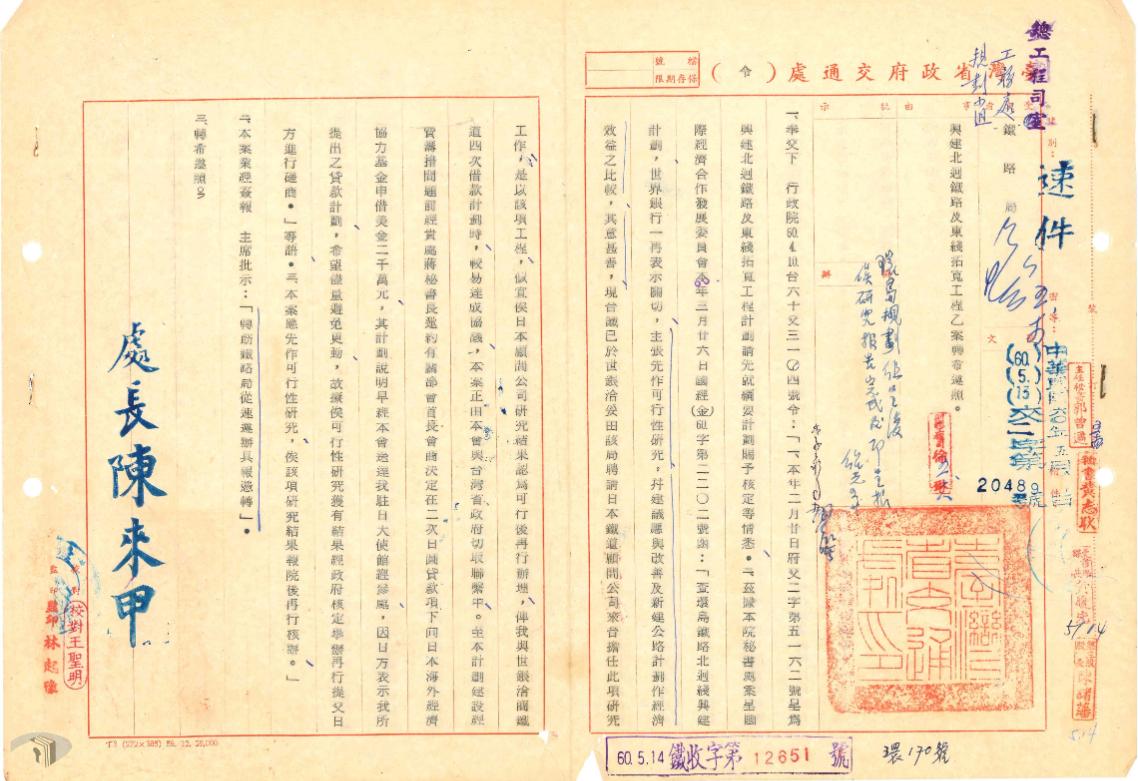 臺灣省政府交通處（令）
檔號
保存期限
總工程司室
速件
鐵路局
中華民國六十年五月
(60.5.13)交二字第
20489號
興建北迴鐵路及東綫拓寬工程乙案轉希遵照。
一、奉交下　行政院60.4.10台六十交三一〇四號令：「一、本年二月廿日府交二字第五一六二號呈為
興建北迴鐵路及東綫拓寬工程計劃請先就綱要計劃賜予核定等情悉。二、茲據本院秘書處案呈國
際經濟合作發展委員會本年三月廿六日國經(金)60字第二二〇二號函：「查環島鐵路北迴綫興建
計劃，世界銀行一再表示關切，主張先作可行性研究，幷建議應與改善及新建公路計劃作經濟
效益之比較，其意甚善，現台鐵已於世銀洽妥由該局聘請日本鐵道顧問公司來台擔任此項研究
工作，是以該項工程，似宜俟日本顧問公司研究結果認爲可行後再行辦理，俾我與世銀洽商鐵
道四次借款計劃時，較易達成協議，本案正由本會與台灣省政府切取聯繫中。至本計劃建設經
費籌措問題前經貴處蔣秘書長邀約有關部會首長會商決定在二次日圓貸款項下向日本海外經濟
協力基金申借美金二千萬元，其計劃說明早經本會送達我駐日大使館經參處，因日方表示我所
提出之貸款計劃，希望盡量避免更動，故擬俟可行性研究獲有結果經政府核定舉辦再行提交日
方進行磋商。」等語。三、本案應先作可行性研究，俟該項研究結果報院後再行核辦。」
二、本案業經簽報　主席批示：「轉飭鐵路局從速遵辦具報憑轉」。
三、轉希遵照。
處長陳來甲
校對王聖明
監印林起
60.5.14 鐵收字第 12651 號
環170號
5/14
5.14